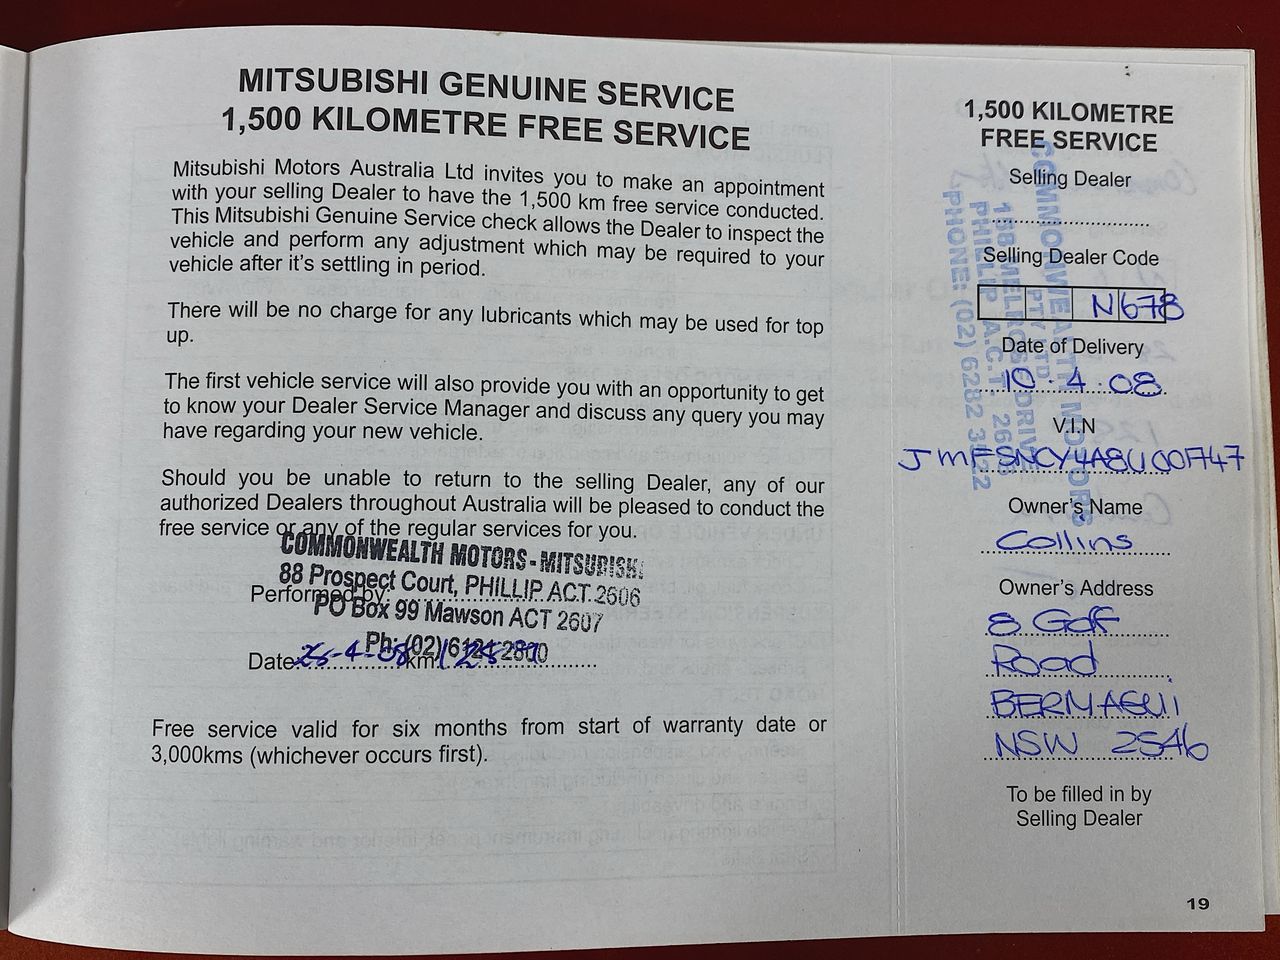 MITSUBISHI GENUINE SERVICE
1,500 KILOMETRE FREE SERVICE
Mitsubishi Motors Australia Ltd invites you to make an appointment
with your selling Dealer to have the 1,500 km free service conducted.
This Mitsubishi Genuine Service check allows the Dealer to inspect the
vehicle and perform any adjustment which may be required to your
vehicle after it's settling in period.
There will be no charge for any lubricants which may be used for top
up.
The first vehicle service will also provide you with an opportunity to get
to know your Dealer Service Manager and discuss any query you may
have regarding your new vehicle.
Should you be unable to return to the selling Dealer, any of our
authorized Dealers throughout Australia will be pleased to conduct the
free service or any of the regular services for you.
COMMONWEALTH MOTORS - MITSUBISHI
88 Prospect Court, PHILLIP ACT 2606
Performed by:
PO Box 99 Mawson ACT 2607
Ph: (02) 6124 2800
Date -4-08 km
Free service valid for six months from start of warranty date or
3,000kms (whichever occurs first).
1,500 KILOMETRE
FREE SERVICE
Selling Dealer
COMMONWEALTH MOTORS
PTY LTD
158 MELROSE DRIVE
PHILLIP A.C.T. 2606
PHONE: (02) 6282 3522
Selling Dealer Code
N678
Date of Delivery
10.4.08
V.I.N
Owner's Name
Collins
Owner's Address
8 Golf
Road
BERMAGUI
NSW 2546
To be filled in by
Selling Dealer
19